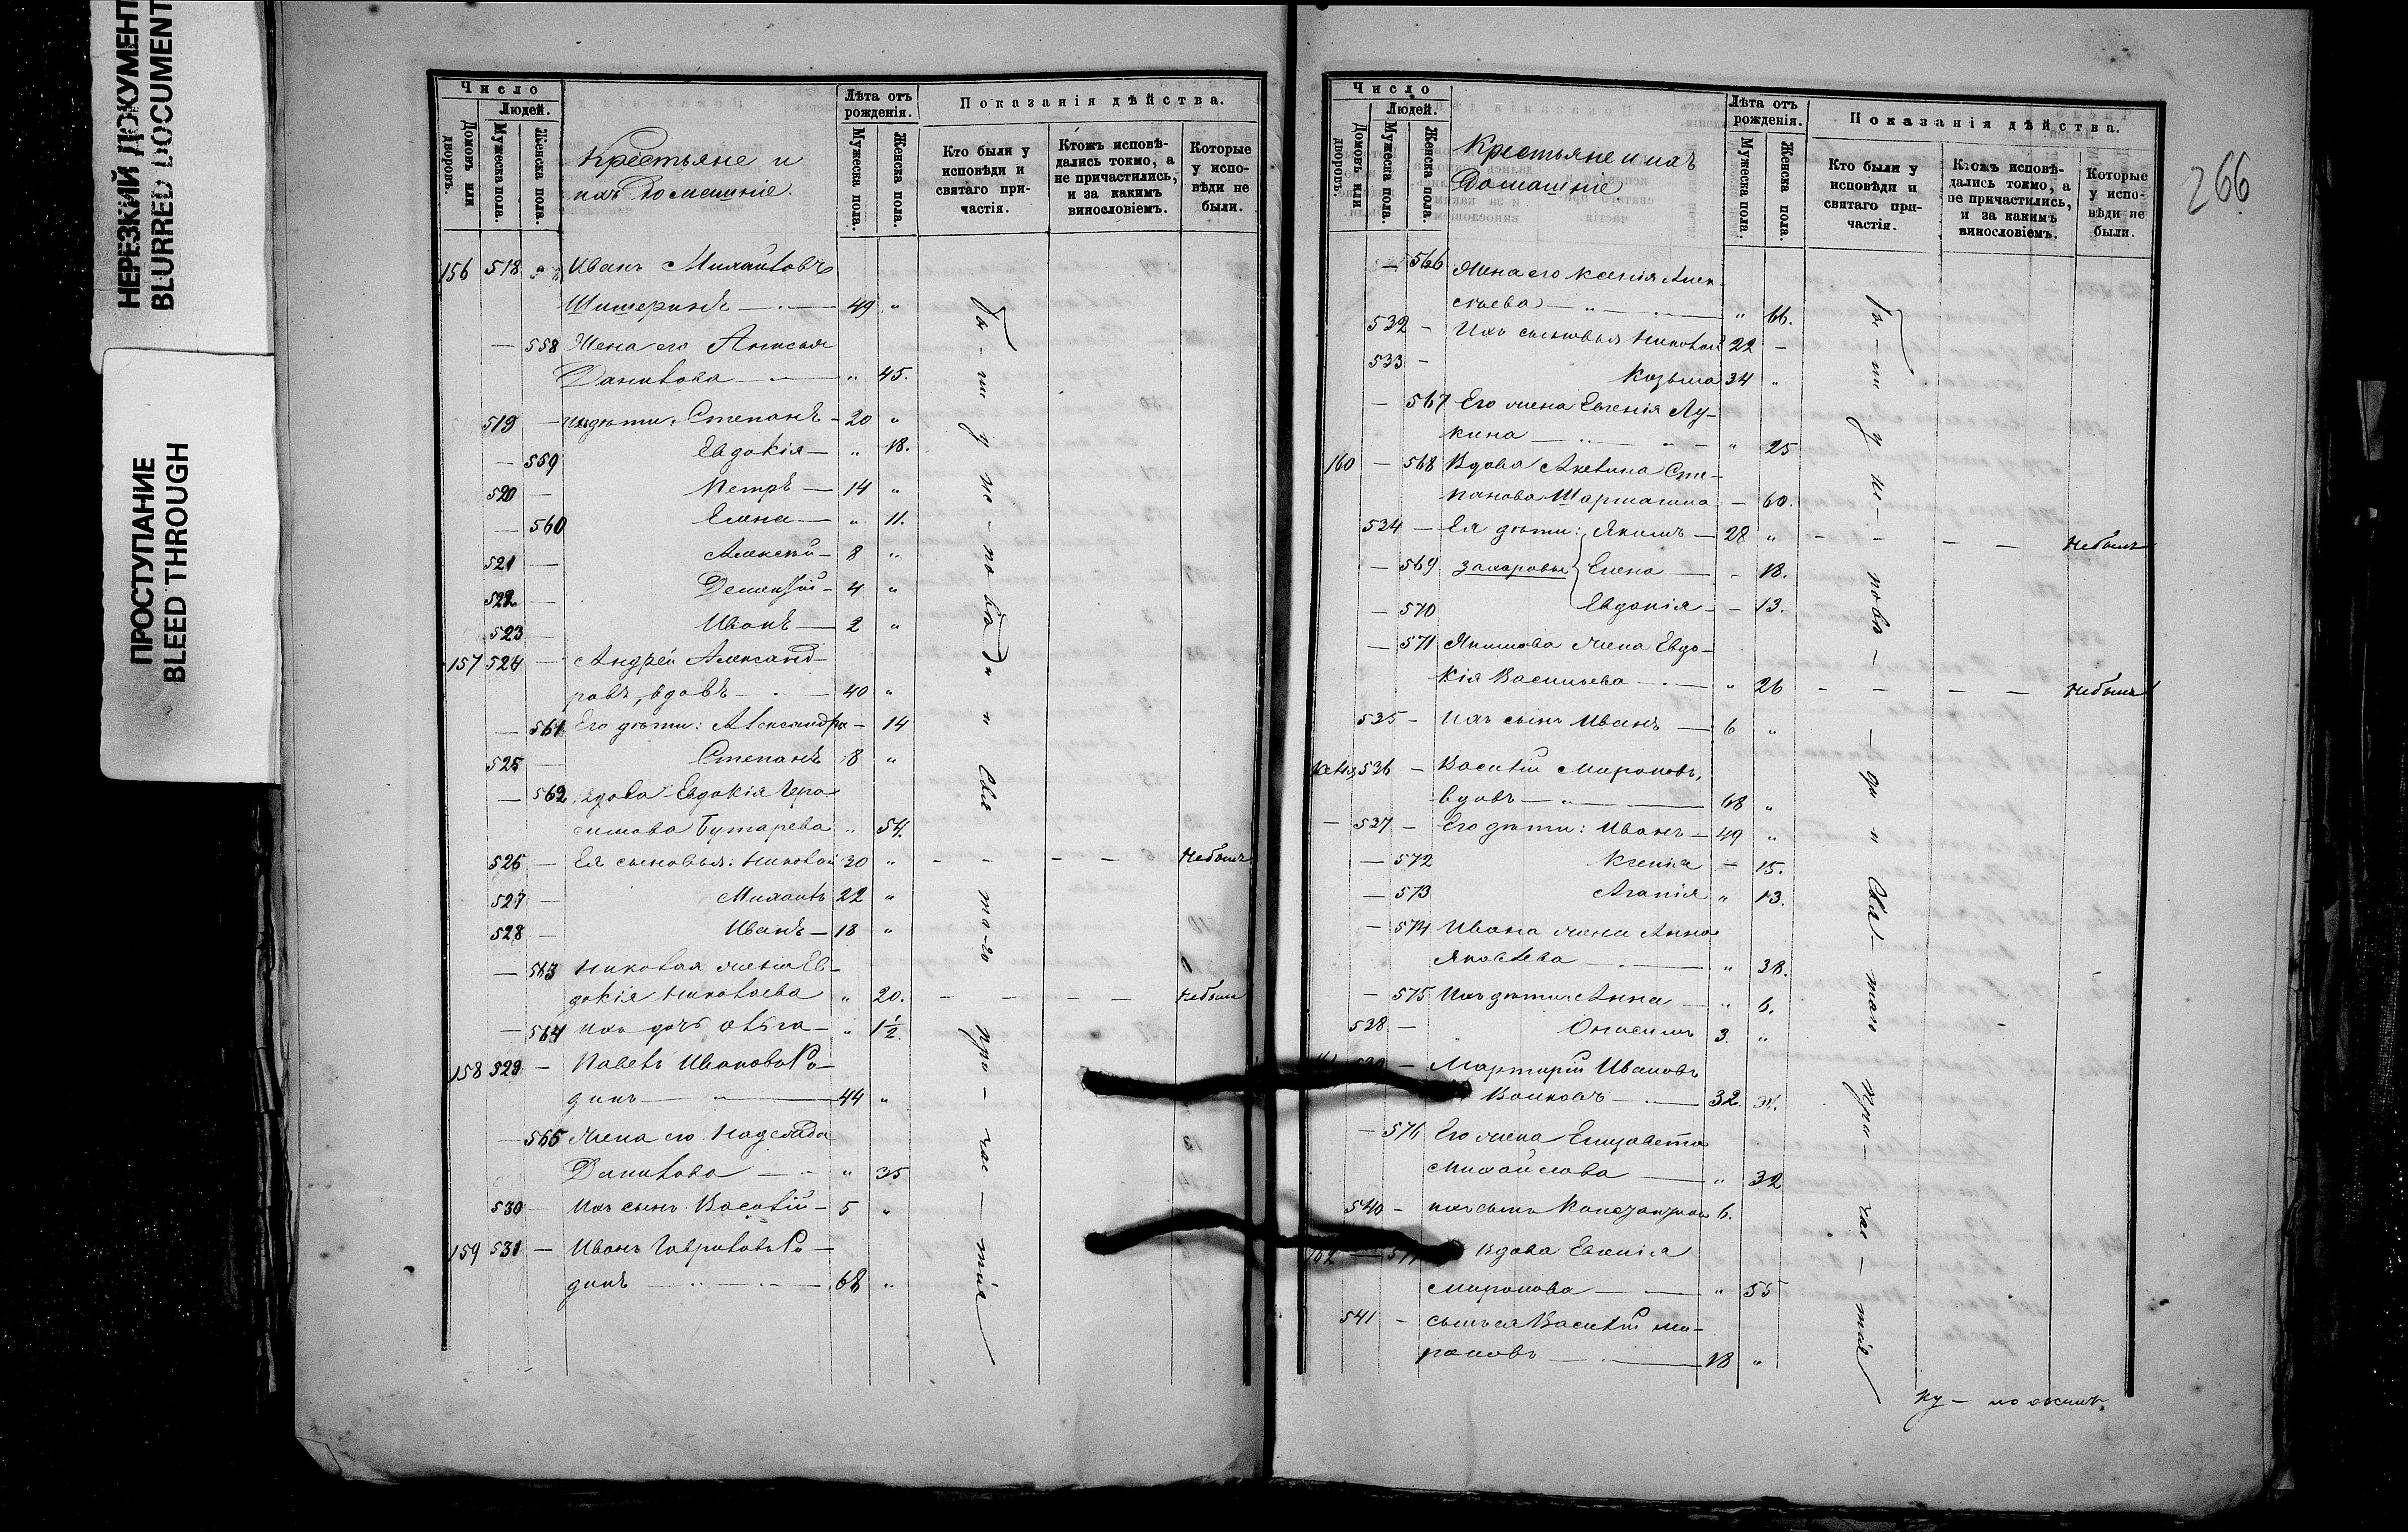 НЕРЕЗКИЙ ДОКУМЕНТ
BLURRED DOCUMENT
ПРОСТУПАНИЕ
BLEED THROUGH
Число
Людей.
Домовъ или дворовъ.
Мужеска пола.
Женска пола.
Крестьяне и
ихъ домашніе.
Лѣта отъ рожденія.
Мужеска пола.
Женска пола.
Показанія дѣйства.
Кто были у исповѣди и святаго причастія.
Ктожъ исповѣдались токмо, а не причастились, и за какимъ винословіемъ.
Которые у исповѣди не были.
156 518 Иванъ Михайловъ
Шитеринъ — 49 „
— 558 Жена его Анисья
Данилова — „ 45.
519 — ихъ дѣти: Степанъ — 20 „
— 559 Евдокія — „ 18.
520 — Петръ — 14 „
— 560 Елена — „ 11.
521 — Алексѣй — 8 „
522 — Дементій — 4 „
523 — Иванъ — 2 „
157 524 — Андрей Александ-
ровъ, вдовъ — 40 „
— 561 Его дѣти: Александра — 14
525 — Степанъ 8 „
— 562 вдова Евдокія Гера-
симова Бутарева „ 54.
526 — Ея сыновья: Николай 30 „ — — — — Небылъ
527 — Михаилъ 22 „
528 — Иванъ — 18 „
— 563 Николая жена Ев-
докія Николаева „ 20. — — — — Небыла
— 564 ихъ дочь Ольга — „ 1½.
158 529 — Павелъ Ивановъ Ро-
динъ — „ — 44 „
— 565 Жена его Надежда
Данилова — „ 35
530 — Ихъ сынъ Василій — 5 „
159 531 — Иванъ Гавриловъ Ро-
динъ — 68 „
Бы-ли у ис-повѣди и свя-то-го при-час-тія
266
Число
Людей.
Домовъ или дворовъ.
Мужеска пола.
Женска пола.
Крестьяне и ихъ
домашніе
Лѣта отъ рожденія.
Мужеска пола.
Женска пола.
Показанія дѣйства.
Кто были у исповѣди и святаго причастія.
Ктожъ исповѣдались токмо, а не причастились, и за какимъ винословіемъ.
Которые у исповѣди не были.
— 566 Жена его Ксенія Алек-
сѣева — „ 66.
532 — Ихъ сыновья Николай 22 —
533 — Козьма 34 „
— 567 Его жена Евгенія Лу-
кина — „ 25
160 — 568 Вдова Акелина Сте-
панова — 60.
534 — Ея дѣти: Якимъ — 28 „ — — — — Небылъ
— 569 Захаровы Елена — 18.
— 570 Евдокія — — 13.
— 571 Якимова жена Евдо-
кія Васильева — „ 26 — — — — Небыла
535 — Ихъ сынъ Иванъ — 6 „
536 — Василій Мироновъ,
вдовъ — „ — 68 „
— 537 — Его дѣти: Иванъ — 49 „
— 572 Ксенія — 15.
— 573 Агапія „ 13.
— 574 Ивана жена Анна
Яковлева — „ 38.
— 575 Ихъ дѣти: Анна — „ 6.
538 — Онисимъ 3. „
— Мартирій Ивановъ
Волковъ — 32.
— 576 Его жена Елизавета
Михайлова — „ 32
540 — ихъ сынъ 6.
162 Вдова Евгенія
Миронова — „ 55
541 — сынъ ея Василій Ми-
роновъ — 18 „
Бы-ли у ис-повѣ-ди и свя-таго при-час-тія